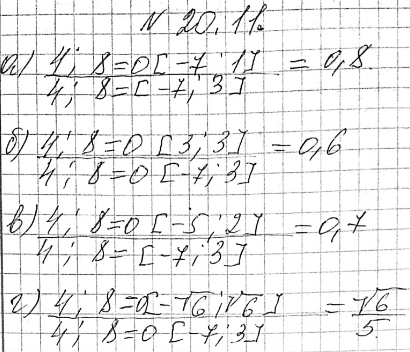 N 20.11.
а) 4; 8=0[-7; 1] = 0,8.
4; 8=[-7; 3]
б) 4; 8=0 [3; 3] = 0,6
4; 8=0[-7; 3]
в) 4; 8=0[-5; 2] = 0,7
4; 8=[-7; 3]
г) 4; 8=0[-√6; √6] = √6
4; 8=0[-7; 3] 5.